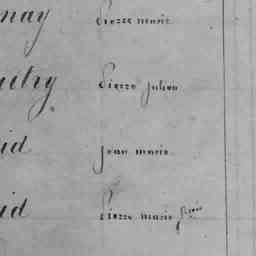 nay Pierre marie
uitry Pierre julien
id jean marie
id Pierre marie